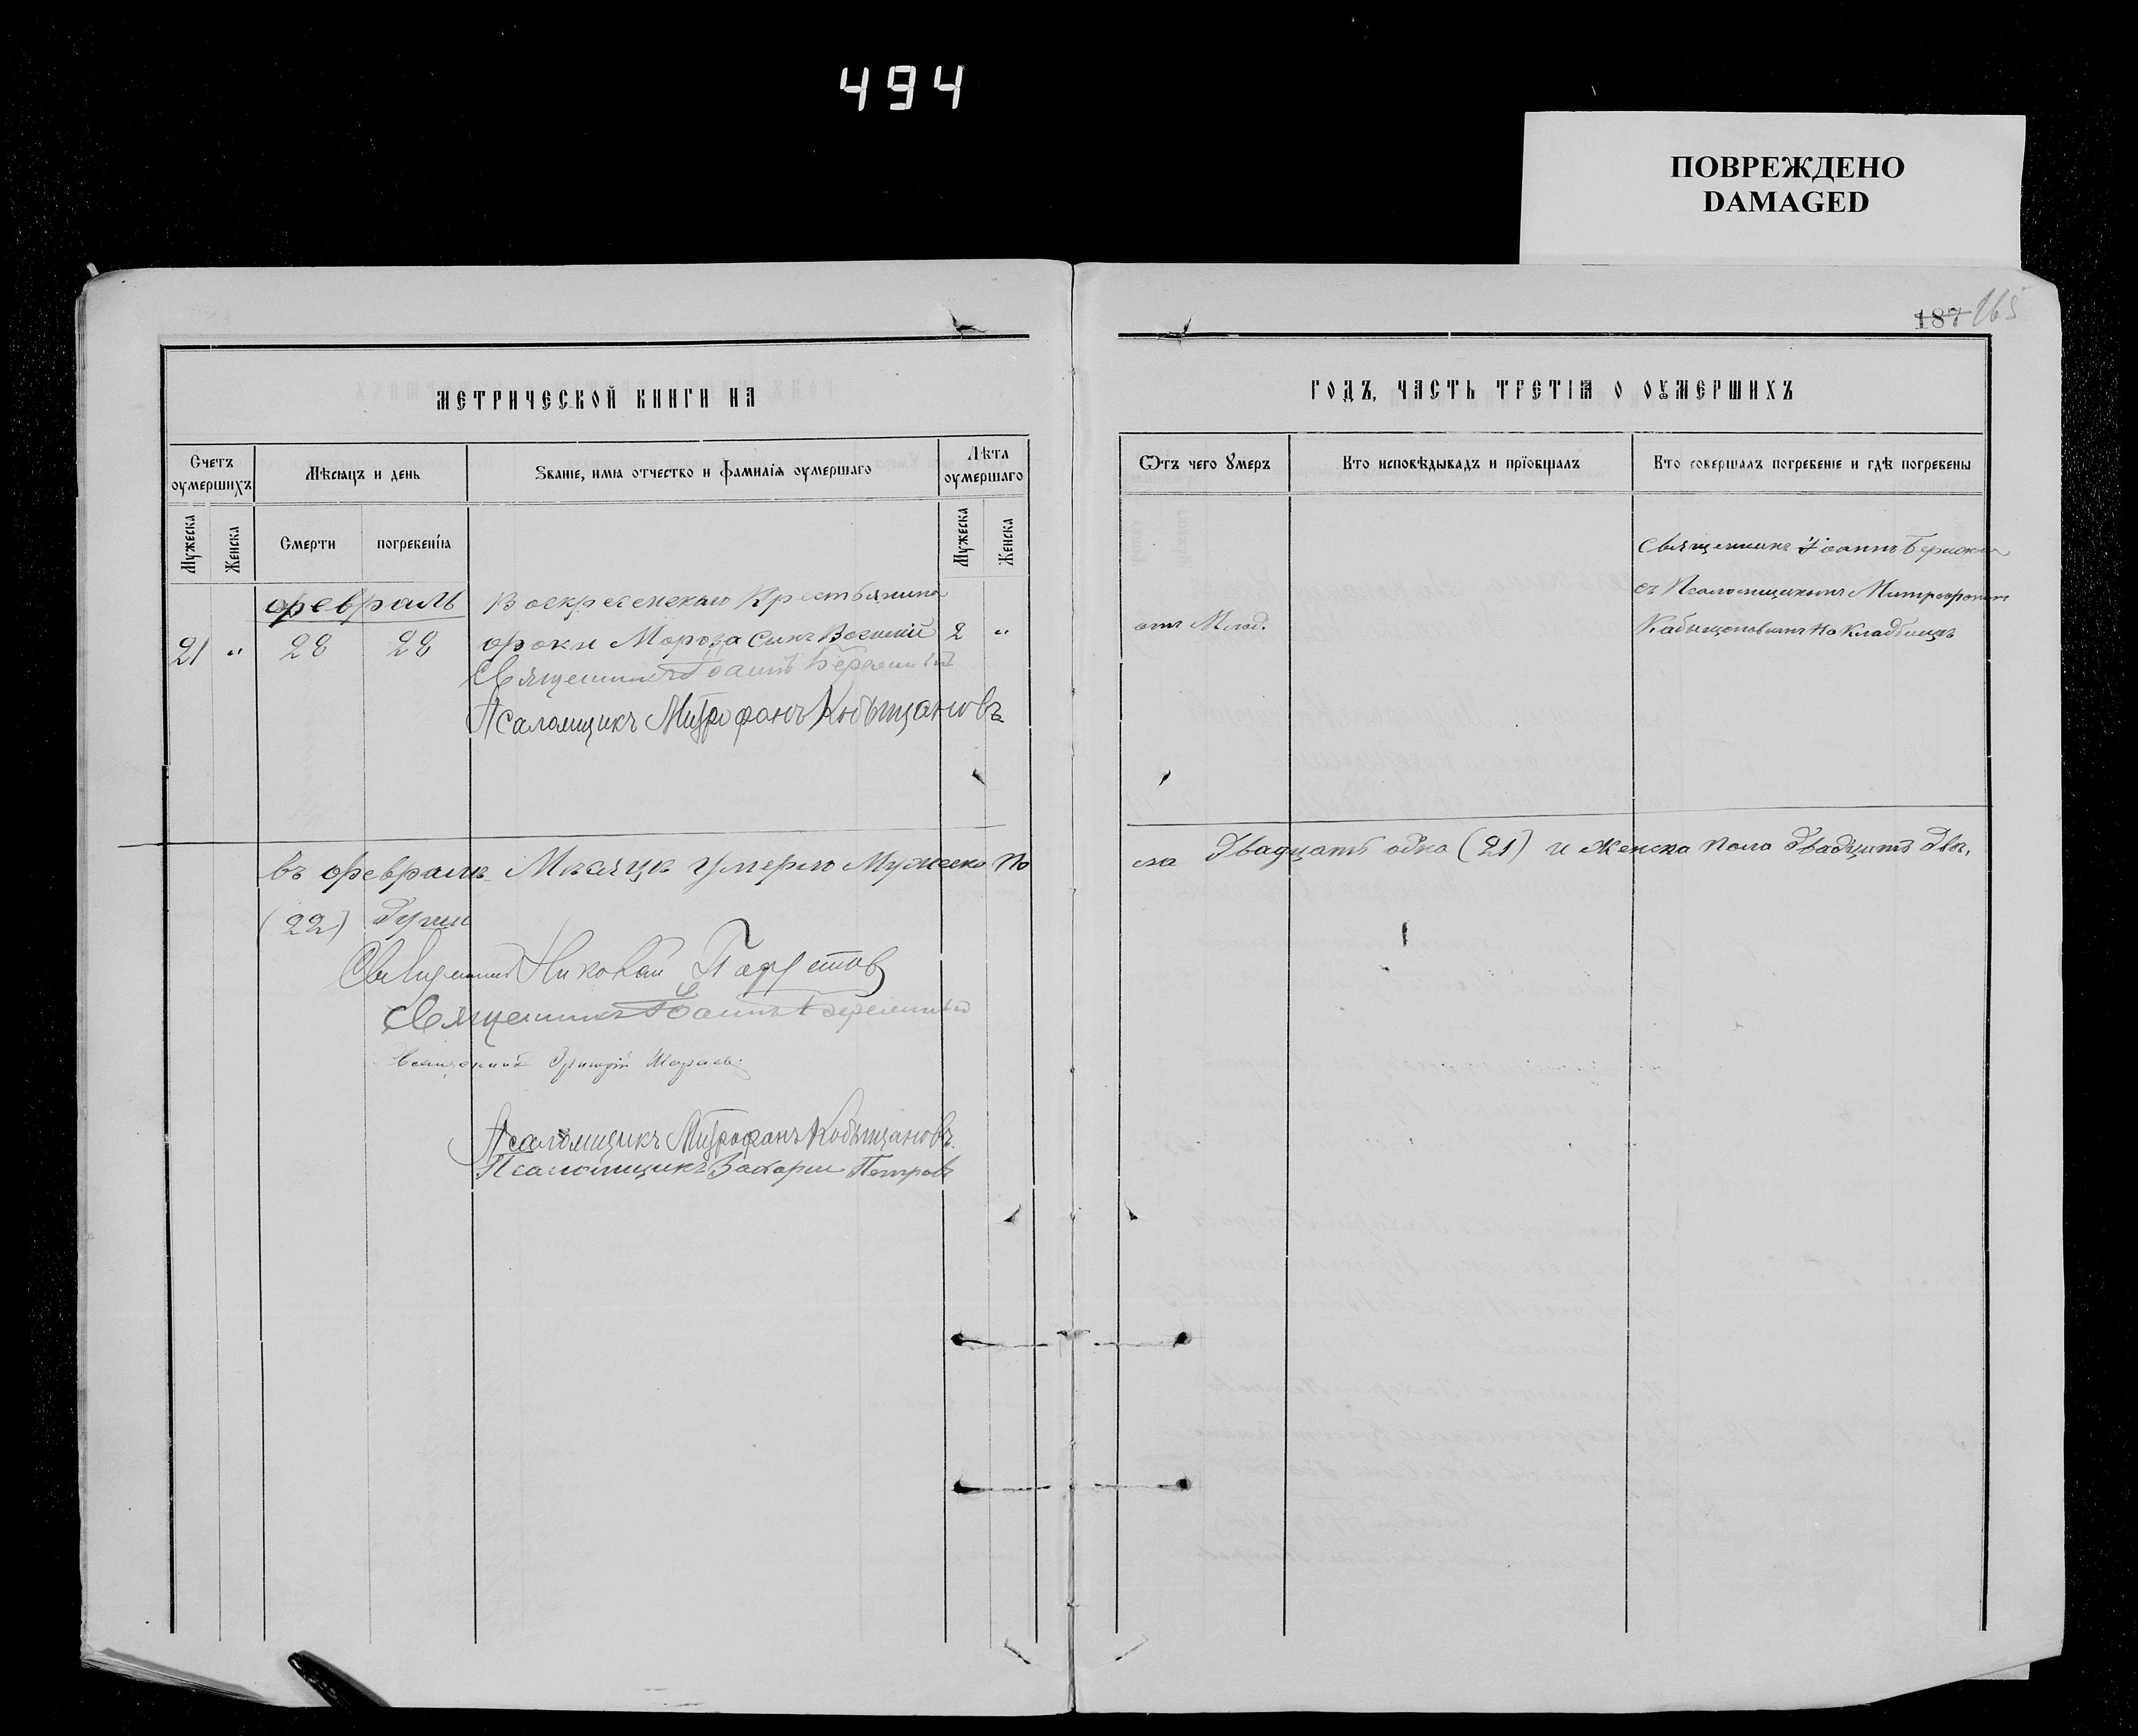 494
ПОВРЕЖДЕНО
DAMAGED
187 165
МЕТРИЧЕСКОЙ КНИГИ НА
ГОДЪ, ЧАСТЬ ТРЕТІѦ О ОУМЕРШИХЪ
Счетъ оумершихъ
Мѣсяцъ и день
Ѕваніе, имя отчество и фамилія оумершаго
Лѣта оумершаго
Ѿтъ чего Умеръ
Кто исповѣдывалъ и пріобщалъ
Кто совершалъ погребеніе и гдѣ погребены
Мужеска
Женска
Смерти
погребенія
Мужеска
Женска
февраль
Воскресенскаго Крестьянина
21 " 28 28
фоки Мороза сынъ 2 "
отъ Млад.
Священникъ Іоаннъ
съ Псаломщикомъ Митрофаномъ
Кабыщановымъ на Кладбищѣ
Священникъ Іоаннъ
Псаломщикъ Митрофанъ Кобыщановъ
въ февралѣ Мѣсяцѣ умерло Мужеска По
ла двадцать одна (21) и женска пола двадцать двѣ,
(22) души
Священникъ Николай
Священникъ Іоаннъ
Священникъ Григорій
Псаломщикъ Митрофанъ Кобыщановъ
Псаломщикъ Захарий Петровъ